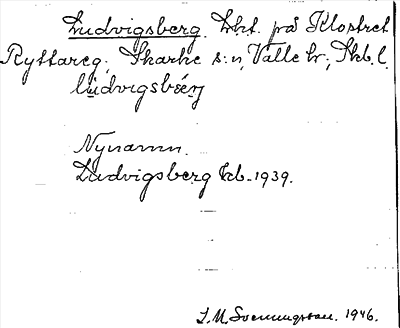 Ludvigsberg. Lht. på Klostret
Ryttareg. Skarke s:n, Valle hr, Skb. l.
lúdvigsbæ̀rj
Nynamn.
Ludvigsberg kb. 1939.
I. M. Svenningsson. 1946.